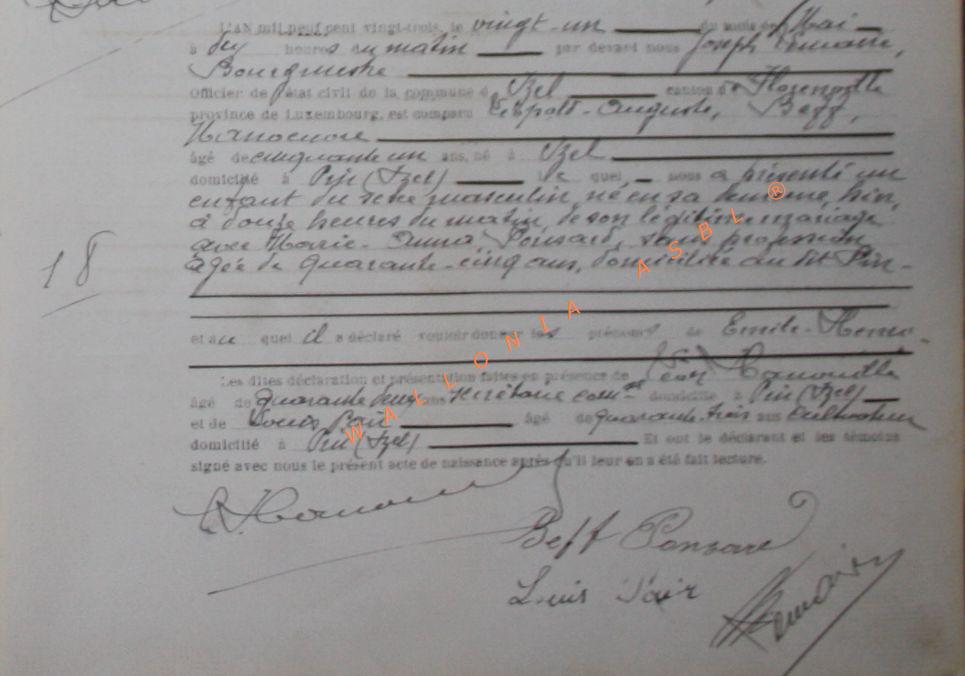 L'AN mil neuf cent vingt-trois, le vingt-un du mois de Mai
à dix heures du matin par devant nous Joseph Lemaire,
Bourgmestre
Officier de l'état civil de la commune d' Izel canton de Florenville
province de Luxembourg, est comparu Léopold-Auguste, Beff,
Manoeuvre
âgé de cinquante un ans, né à Izel
domicilié à Pin (Izel) le quel nous a présenté un
enfant du sexe masculin, né en sa hier,
à douze heures du matin, de son légitime mariage
avec Marie-Anna, Ponsard, sans profession,
âgée de quarante-cinq ans, domiciliée au dit Pin-
18
et au quel il a déclaré vouloir donner les prénoms de Emile-
Les dites déclaration et présentation faites en présence de
âgé de quarante deux ans secrétaire com-al domicilié à Pin (Izel)
et de Louis âgé de quarante-trois ans cultivateur
domicilié à Pin (Izel) Et ont le déclarant et les témoins
signé avec nous le présent acte de naissance après qu'il leur en a été fait lecture.
Beff Ponsard
Louis
Lemaire
WALLONIA ASBL ®